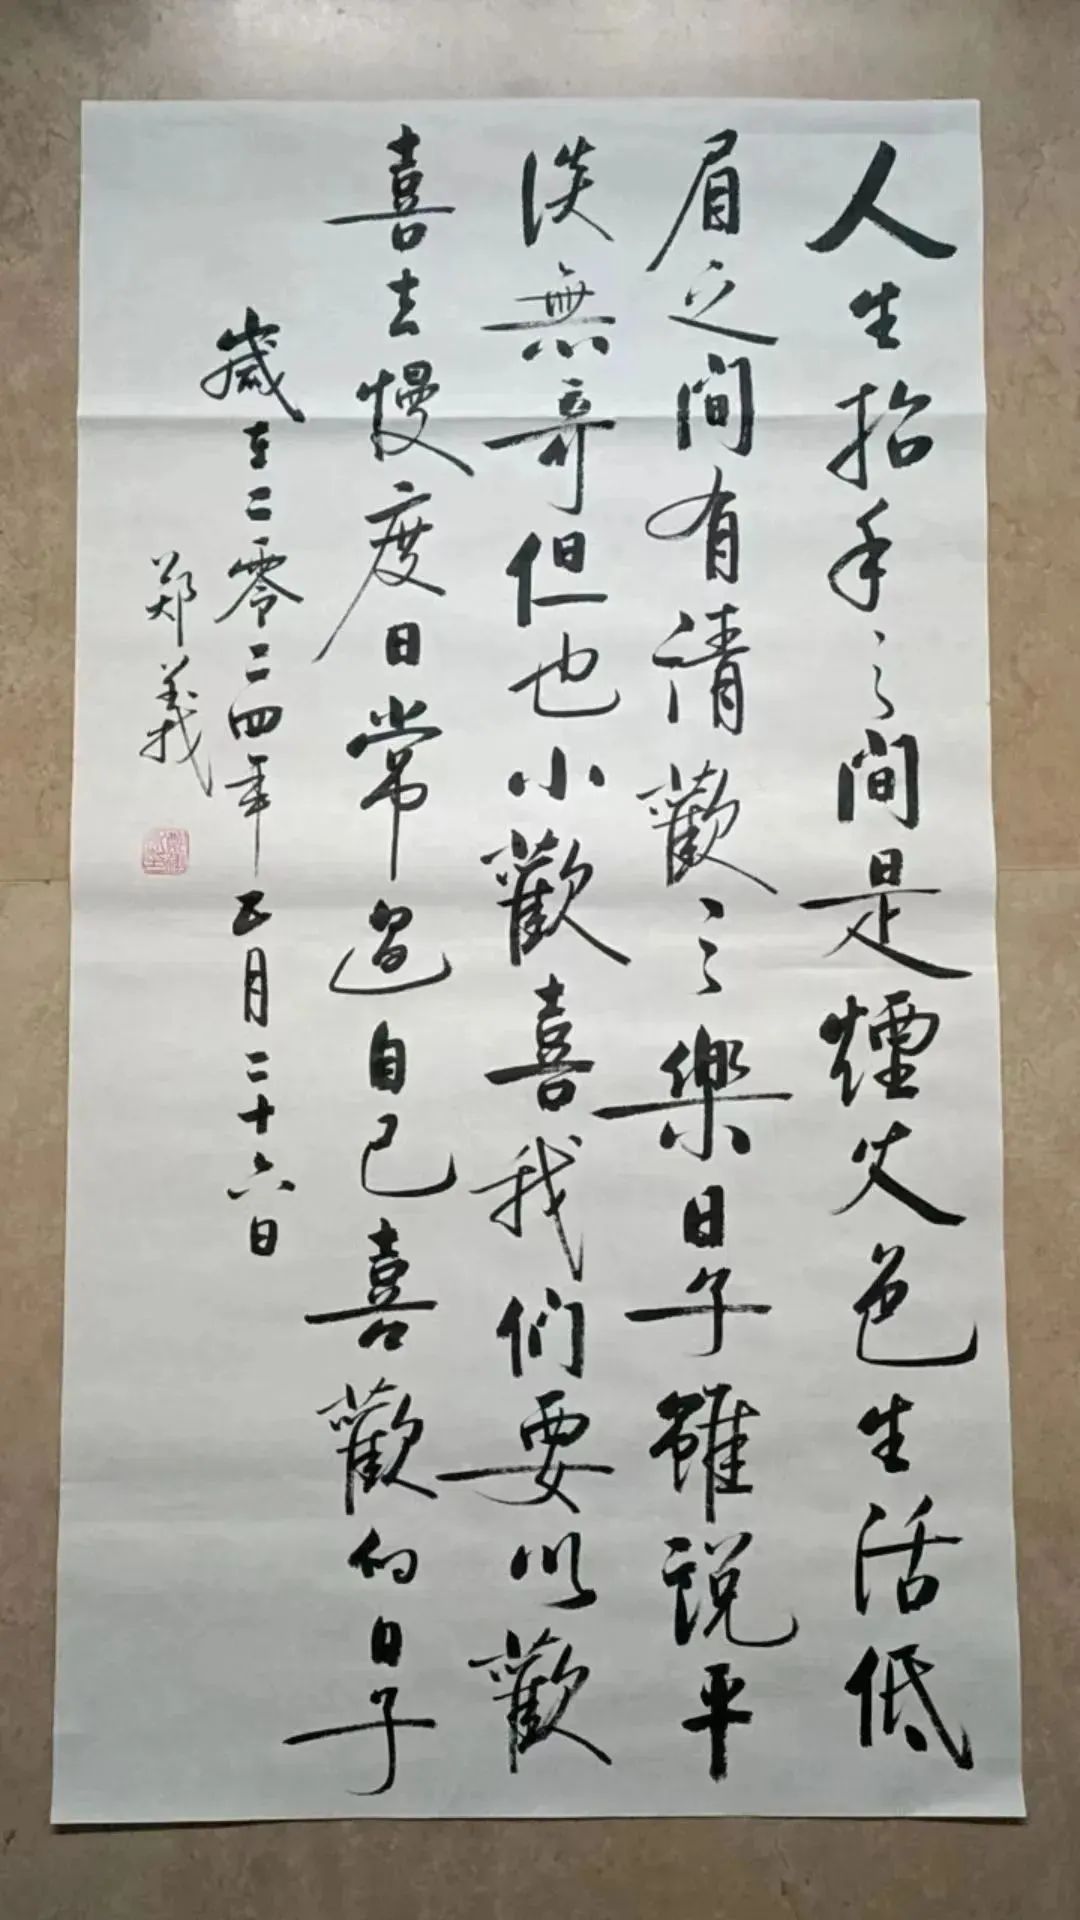 人生抬手之间是煙火色生活低
眉之間有清歡之樂日子雖説平
淡無奇但也小歡喜我们要以歡
喜去慢度日常過自己喜歡的日子
歲在二零二四年正月二十六日
郑義